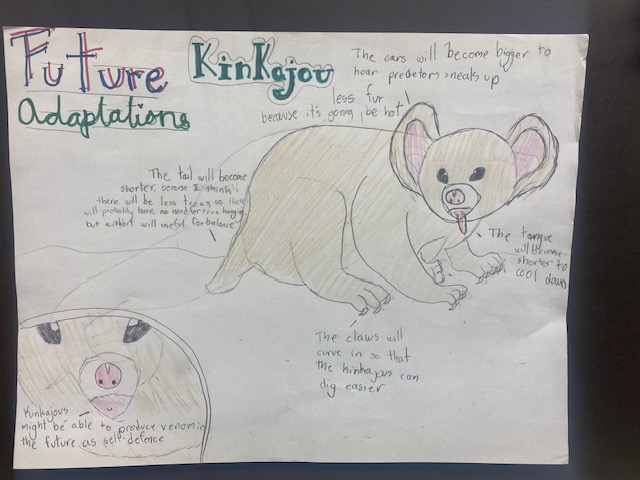 Future
Kinkajou
Adaptations
The ears will become bigger to
hear predetors sneak up
less fur
because it's gonna be hot
The tail will become
shorter, because I think
there will be less trees, so they
will probably have no need for tree hanging
but a short will useful for balance
The tongue
will become
shorter to
cool down
The claws will
curve in so that
the kinkajous can
dig easier
Kinkajous
might be able to produce venom in
the future as self-defence